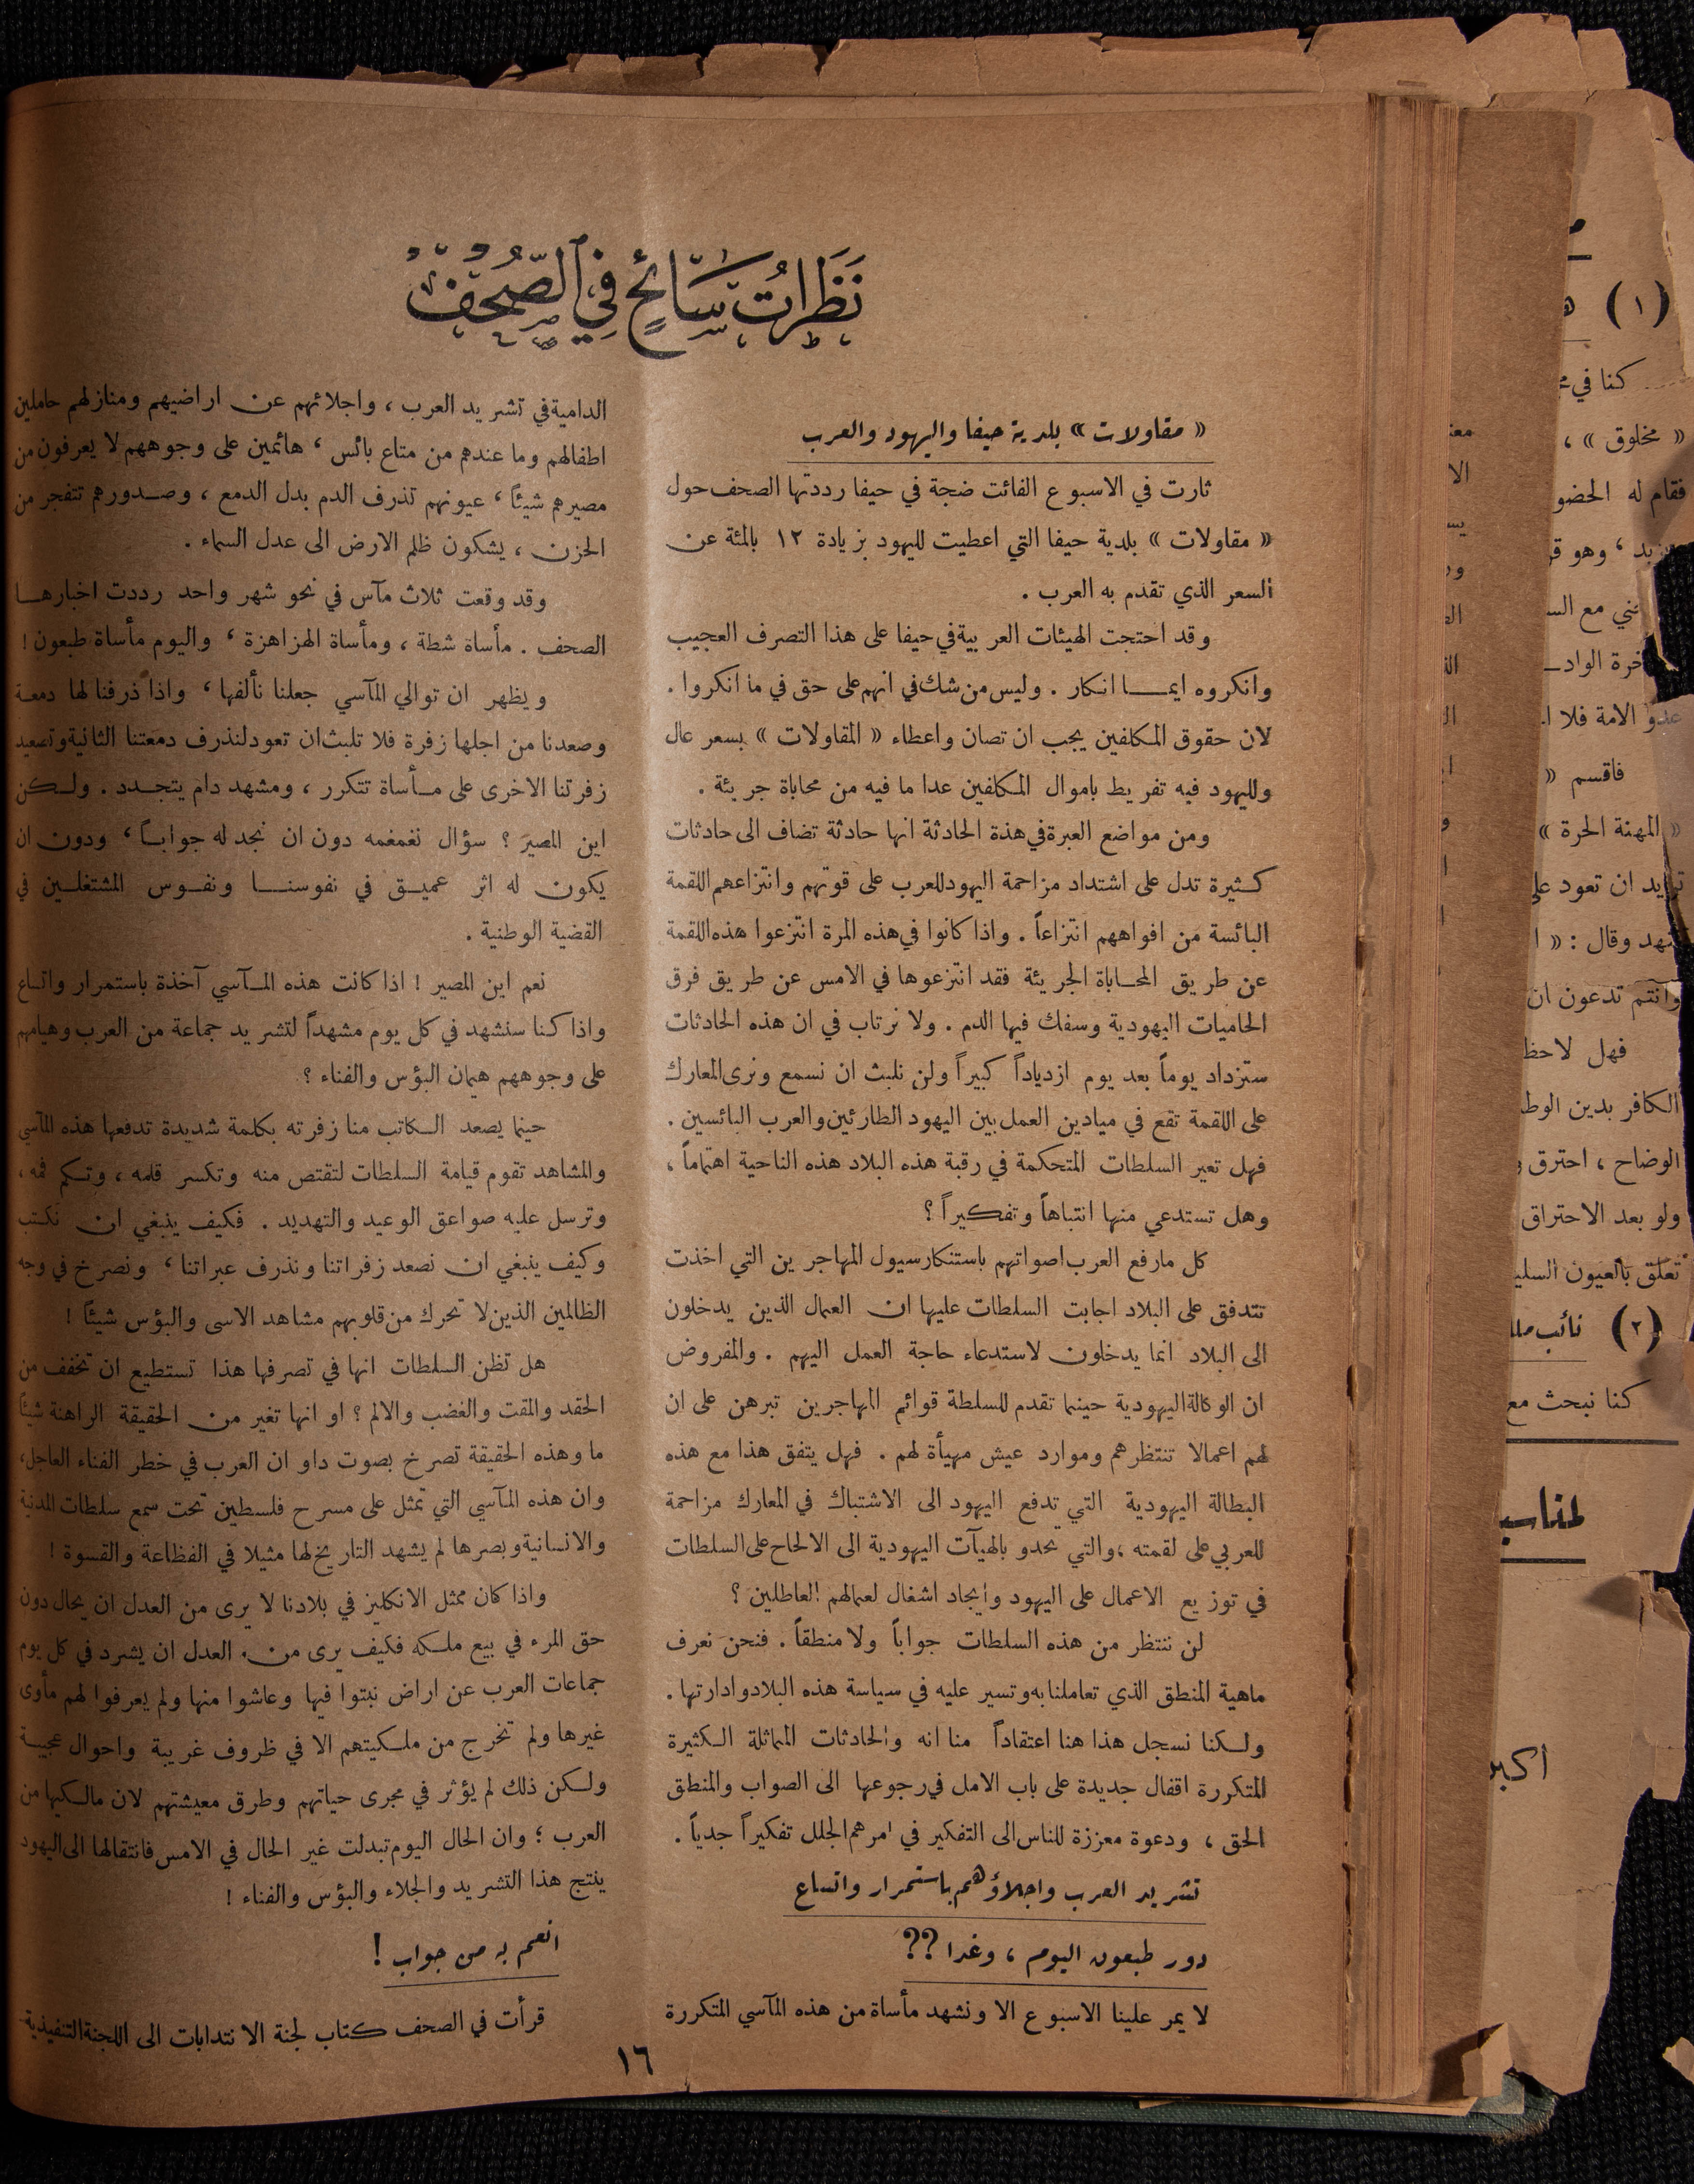 نَظَرَاتُ سَائِحٍ فِي الصُّحُفْ
« مقاولات » بلدية حيفا واليهود والعرب
ثارت في الاسبوع الفائت ضجة في حيفا رددتها الصحف حول
« مقاولات » بلدية حيفا التي اعطيت لليهود بزيادة ١٢ بالمئة عن
السعر الذي تقدم به العرب .
وقد احتجت الهيئات العربية في حيفا على هذا التصرف العجيب
وانكروه ايمـــا انكار . وليس من شك في انهم على حق في ما انكروا .
لان حقوق المكلفين يجب ان تصان واعطاء « المقاولات » بسعر عال
ولليهود فيه تفريط باموال المكلفين عدا ما فيه من محاباة جريئة .
ومن مواضع العبرة في هذة الحادثة انها حادثة تضاف الى حادثات
كـثيرة تدل على اشتداد مزاحمة اليهود للعرب على قوتهم وانتزاعهم اللقمة
البائسة من افواههم انتزاعاً . واذا كانوا في هذه المرة انتزعوا هذه اللقمة
عن طريق المحـاباة الجريئة فقد انتزعوها في الامس عن طريق فرق
الحاميات اليهودية وسفك فيها الدم . ولا نرتاب في ان هذه الحادثات
ستزداد يوماً بعد يوم ازدياداً كبيراً ولن نلبث ان نسمع ونرى المعارك
على اللقمة تقع في ميادين العمل بين اليهود الطارئين والعرب البائسين .
فهل تعير السلطات المتحكمة في رقبة هذه البلاد هذه الناحية اهتماماً ،
وهل تستدعي منها انتباهاً وتفكيراً ؟
كل مارفع العرب اصواتهم باستنكار سيول المهاجرين التي اخذت
تتدفق على البلاد اجابت السلطات عليها ان العمال الذين يدخلون
الى البلاد انما يدخلون لاستدعاء حاجة العمل اليهم . والمفروض
ان الوكالة اليهودية حينما تقدم للسلطة قوائم المهاجرين تبرهن على ان
لهم اعمالا تنتظرهم وموارد عيش مهيأة لهم . فهل يتفق هذا مع هذه
البطالة اليهودية التي تدفع اليهود الى الاشتباك في المعارك مزاحمة
للعربي على لقمته ،والتي تحدو بالهيآت اليهودية الى الالحاح على السلطات
في توزيع الاعمال على اليهود وايجاد اشغال لعمالهم العاطلين ؟
لن ننتظر من هذه السلطات جواباً ولا منطقاً . فنحن نعرف
ماهية المنطق الذي تعاملنا به وتسير عليه في سياسة هذه البلاد وادارتها .
ولـكنا نسجل هذا هنا اعتقاداً منا انه والحادثات المماثلة الـكثيرة
المتكررة اقفال جديدة على باب الامل في رجوعها الى الصواب والمنطق
الحق ، ودعوة معززة للناس الى التفكير في امرهم الجلل تفكيراً جدياً .
تشريد العرب واجلاؤهم باستمرار واتساع
دور طبعون اليوم ، وغدا ؟؟
لا يمر علينا الاسبوع الا ونشهد مأساة من هذه المآسي المتكررة
الدامية في تشريد العرب ، واجلائهم عن اراضيهم ومنازلهم حاملين
اطفالهم وما عندهم من متاع بائس ، هائمين على وجوههم لا يعرفون من
مصيرهم شيئاً ، عيونهم تذرف الدم بدل الدمع ، وصـدورهم تتفجر من
الحزن ، يشكون ظلم الارض الى عدل السماء .
وقد وقعت ثلاث مآس في نحو شهر واحد رددت اخبارهـا
الصحف . مأساة شطة ، ومأساة الهزاهزة ، واليوم مأساة طبعون !
ويظهر ان توالي المآسي جعلنا نألفها ، واذا ذرفنا لها دمعـة
وصعدنا من اجلها زفرة فلا تلبث ان تعود لنذرف دمعتنا الثانية وتصعيد
زفرتنا الاخرى على مـأساة تتكرر ، ومشهد دام يتجـدد . ولـكن
اين المصير ؟ سؤال نغمغمه دون ان نجد له جوابـاً ، ودون ان
يكون له اثر عميـق في نفوسنـــا ونفـوس المشتغلـين في
القضية الوطنية .
نعم اين المصير ! اذا كانت هذه المـآسي آخذة باستمرار واتساع
واذا كـنا سنشهد في كل يوم مشهداً لتشريد جماعة من العرب وهيامهم
على وجوههم هيمان البؤس والفناء ؟
حينما يصعد الـكاتب منا زفرته بكلمة شديدة تدفعها هذه المآسي
والمشاهد تقوم قيامة السلطات لتقتص منه وتكسر قلمه ، وتـكم فمه ،
وترسل عليه صواعق الوعيد والتهديد . فكيف ينبغي ان نكتب
وكيف ينبغي ان نصعد زفراتنا ونذرف عبراتنا ، ونصرخ في وجه
الظالمين الذين لا تحرك من قلوبهم مشاهد الاسى والبؤس شيئاً !
هل تظن السلطات انها في تصرفها هذا تستطيع ان تخفف من
الحقد والمقت والغضب والالم ؟ او انها تغير من الحقيقة الراهنة شيئاً
ما وهذه الحقيقة تصرخ بصوت داو ان العرب في خطر الفناء العاجل ،
وان هذه المآسي التي تمثل على مسرح فلسطين تحت سمع سلطات المدنية
والانسانية وبصرها لم يشهد التاريخ لها مثيلا في الفظاعة والقسوة !
واذا كان ممثل الانكليز في بلادنا لا يرى من العدل ان يحال دون
حق المرء في بيع ملـكه فكيف يرى من العدل ان يشرد في كل يوم
جماعات العرب عن اراض نبتوا فيها وعاشوا منها ولم يعرفوا لهم مأوى
غيرها ولم تخرج من ملـكيتهم الا في ظروف غريبة واحوال عجيبـة
ولـكن ذلك لم يؤثر في مجرى حياتهم وطرق معيشتهم لان مالـكيها من
العرب ؛ وان الحال اليوم تبدلت غير الحال في الامس فانتقالها الى اليهود
ينتج هذا التشريد والجلاء والبؤس والفناء !
انعم به من جواب !
قرأت في الصحف كـتاب لجنة الانتدابات الى اللجنة التنفيذية
١٦
( ١ )
كنا في
« مخلوق » ،
فقام له الحضو
وهو
مع
عدو الامة فلا
فاقسم »
« المهنة الحرة »
ان تعود
وقال : »
وانتم تدعون ان
فهل لاحظ
الكافر بدين
الوضاح ، احترق
ولو بعد الاحتراق
تعلق بالعيون
( ٢ ) نائب
كنا نبحث مع